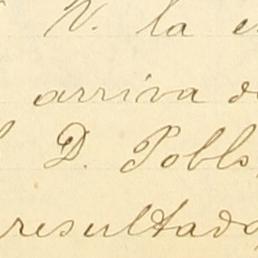 V. la
arriva
D. Poblo
resultado